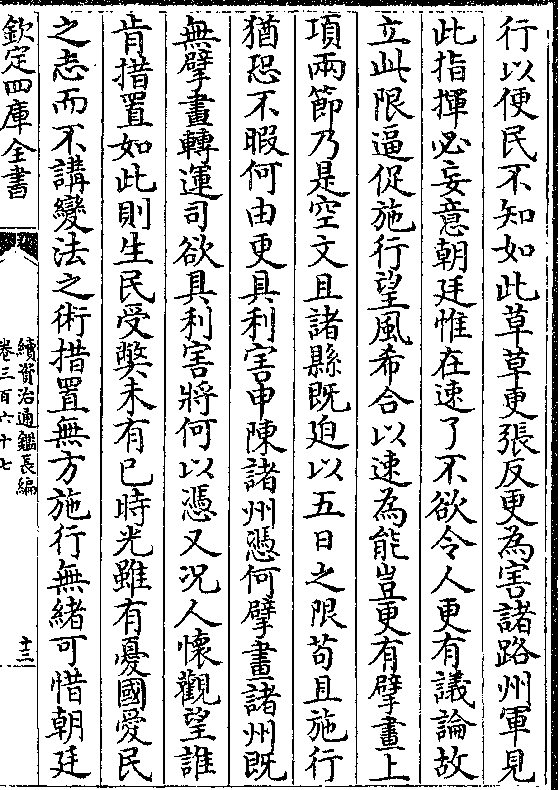 行以便民不知如此草草更張反更為害諸路州軍見
此指揮必妄意朝廷惟在速了不欲令人更有議論故
立此限逼促施行望風希合以速為能豈更有擘畫上
項兩節乃是空文且諸縣既迫以五日之限苟且施行
猶恐不暇何由更具利害申陳諸州憑何擘畫諸州既
無擘畫轉運司欲具利害將何以憑又況人懷觀望誰
肯措置如此則生民受弊未有已時光雖有憂國愛民
之志而不講變法之術措置無方施行無緒可惜朝廷
欽定四庫全書
續資治通鑑長編
卷三百六十七
十三